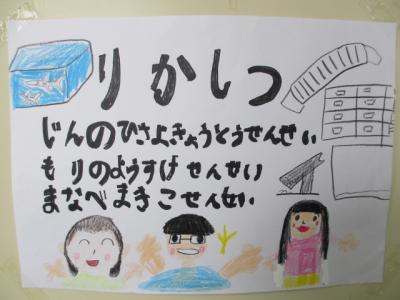 りかしつ
じんのひさよきょうとうせんせい
もりのようすけせんせい
まなべまきこせんせい